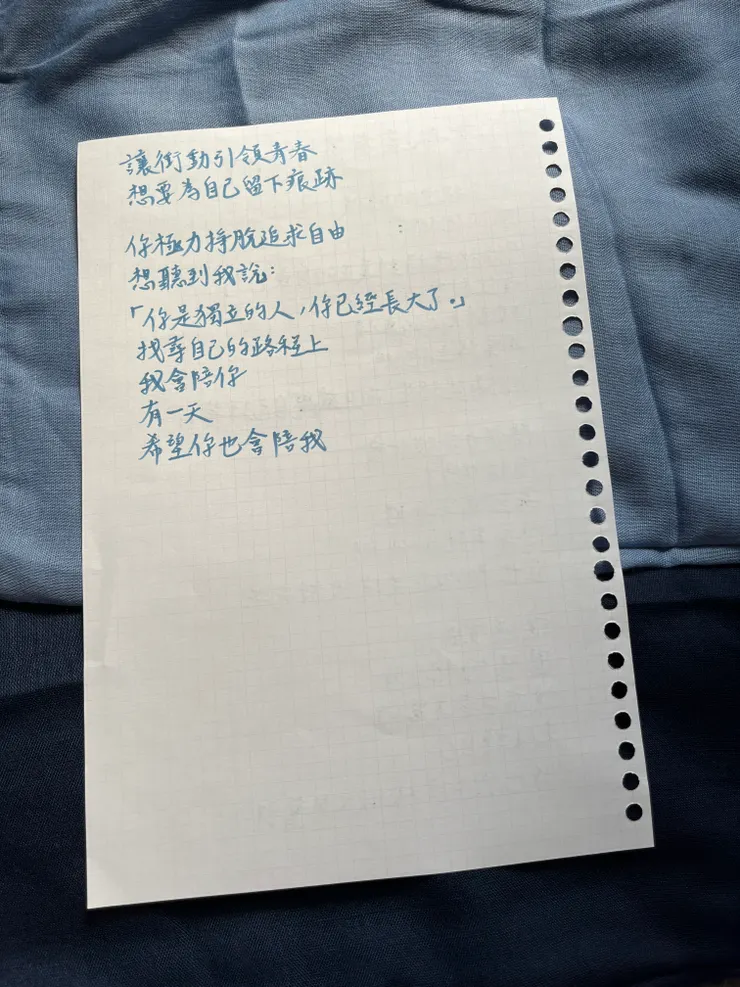 讓衝動引領青春
想要為自己留下痕跡
你極力掙脫追求自由
想聽到我說:
「你是獨立的人，你已經長大了。」
找尋自己的路徑上
我會陪你
有一天
希望你也會陪我